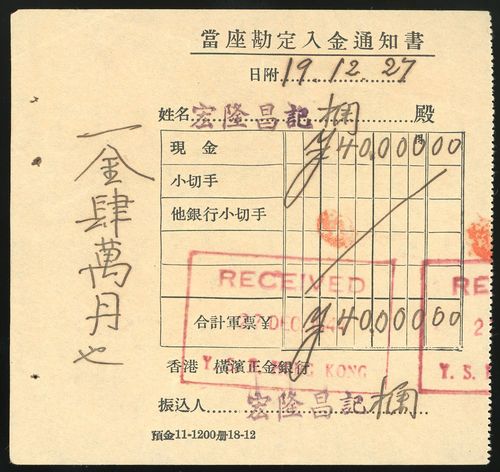 當座勘定入金通知書
日附 19.12.27
姓名 宏隆昌記 欄 殿
現金 ¥40,000000
小切手
他銀行小切手
RECEIVED
RE
合計軍票¥ ¥40000000
27 DEC 194
2
Y. S. B. HONG KONG
Y. S.
香港 橫濱正金銀行
振込人 宏隆昌記 欄
預金11-1200册18-12
一金肆萬円也